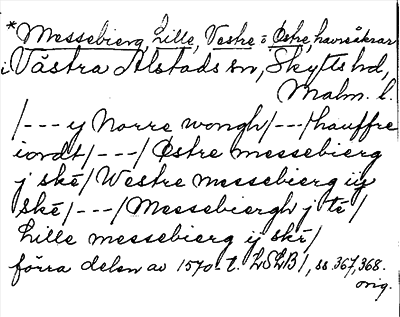 *Messebierg, Lille, Vestre o Östre, havreåkrar
i Västra Alstads sn, Skytts hd,
Malm. l.
/---y Norre wongh/---/hauffre
iordt/---/Østre messebierg
j skè/Westre messebierg iij
skè/---/Messebiergh j tè/
Lille messebierg ij skè/
förra delen av 1570-t. LSLB1, ss 367,368.
orig.